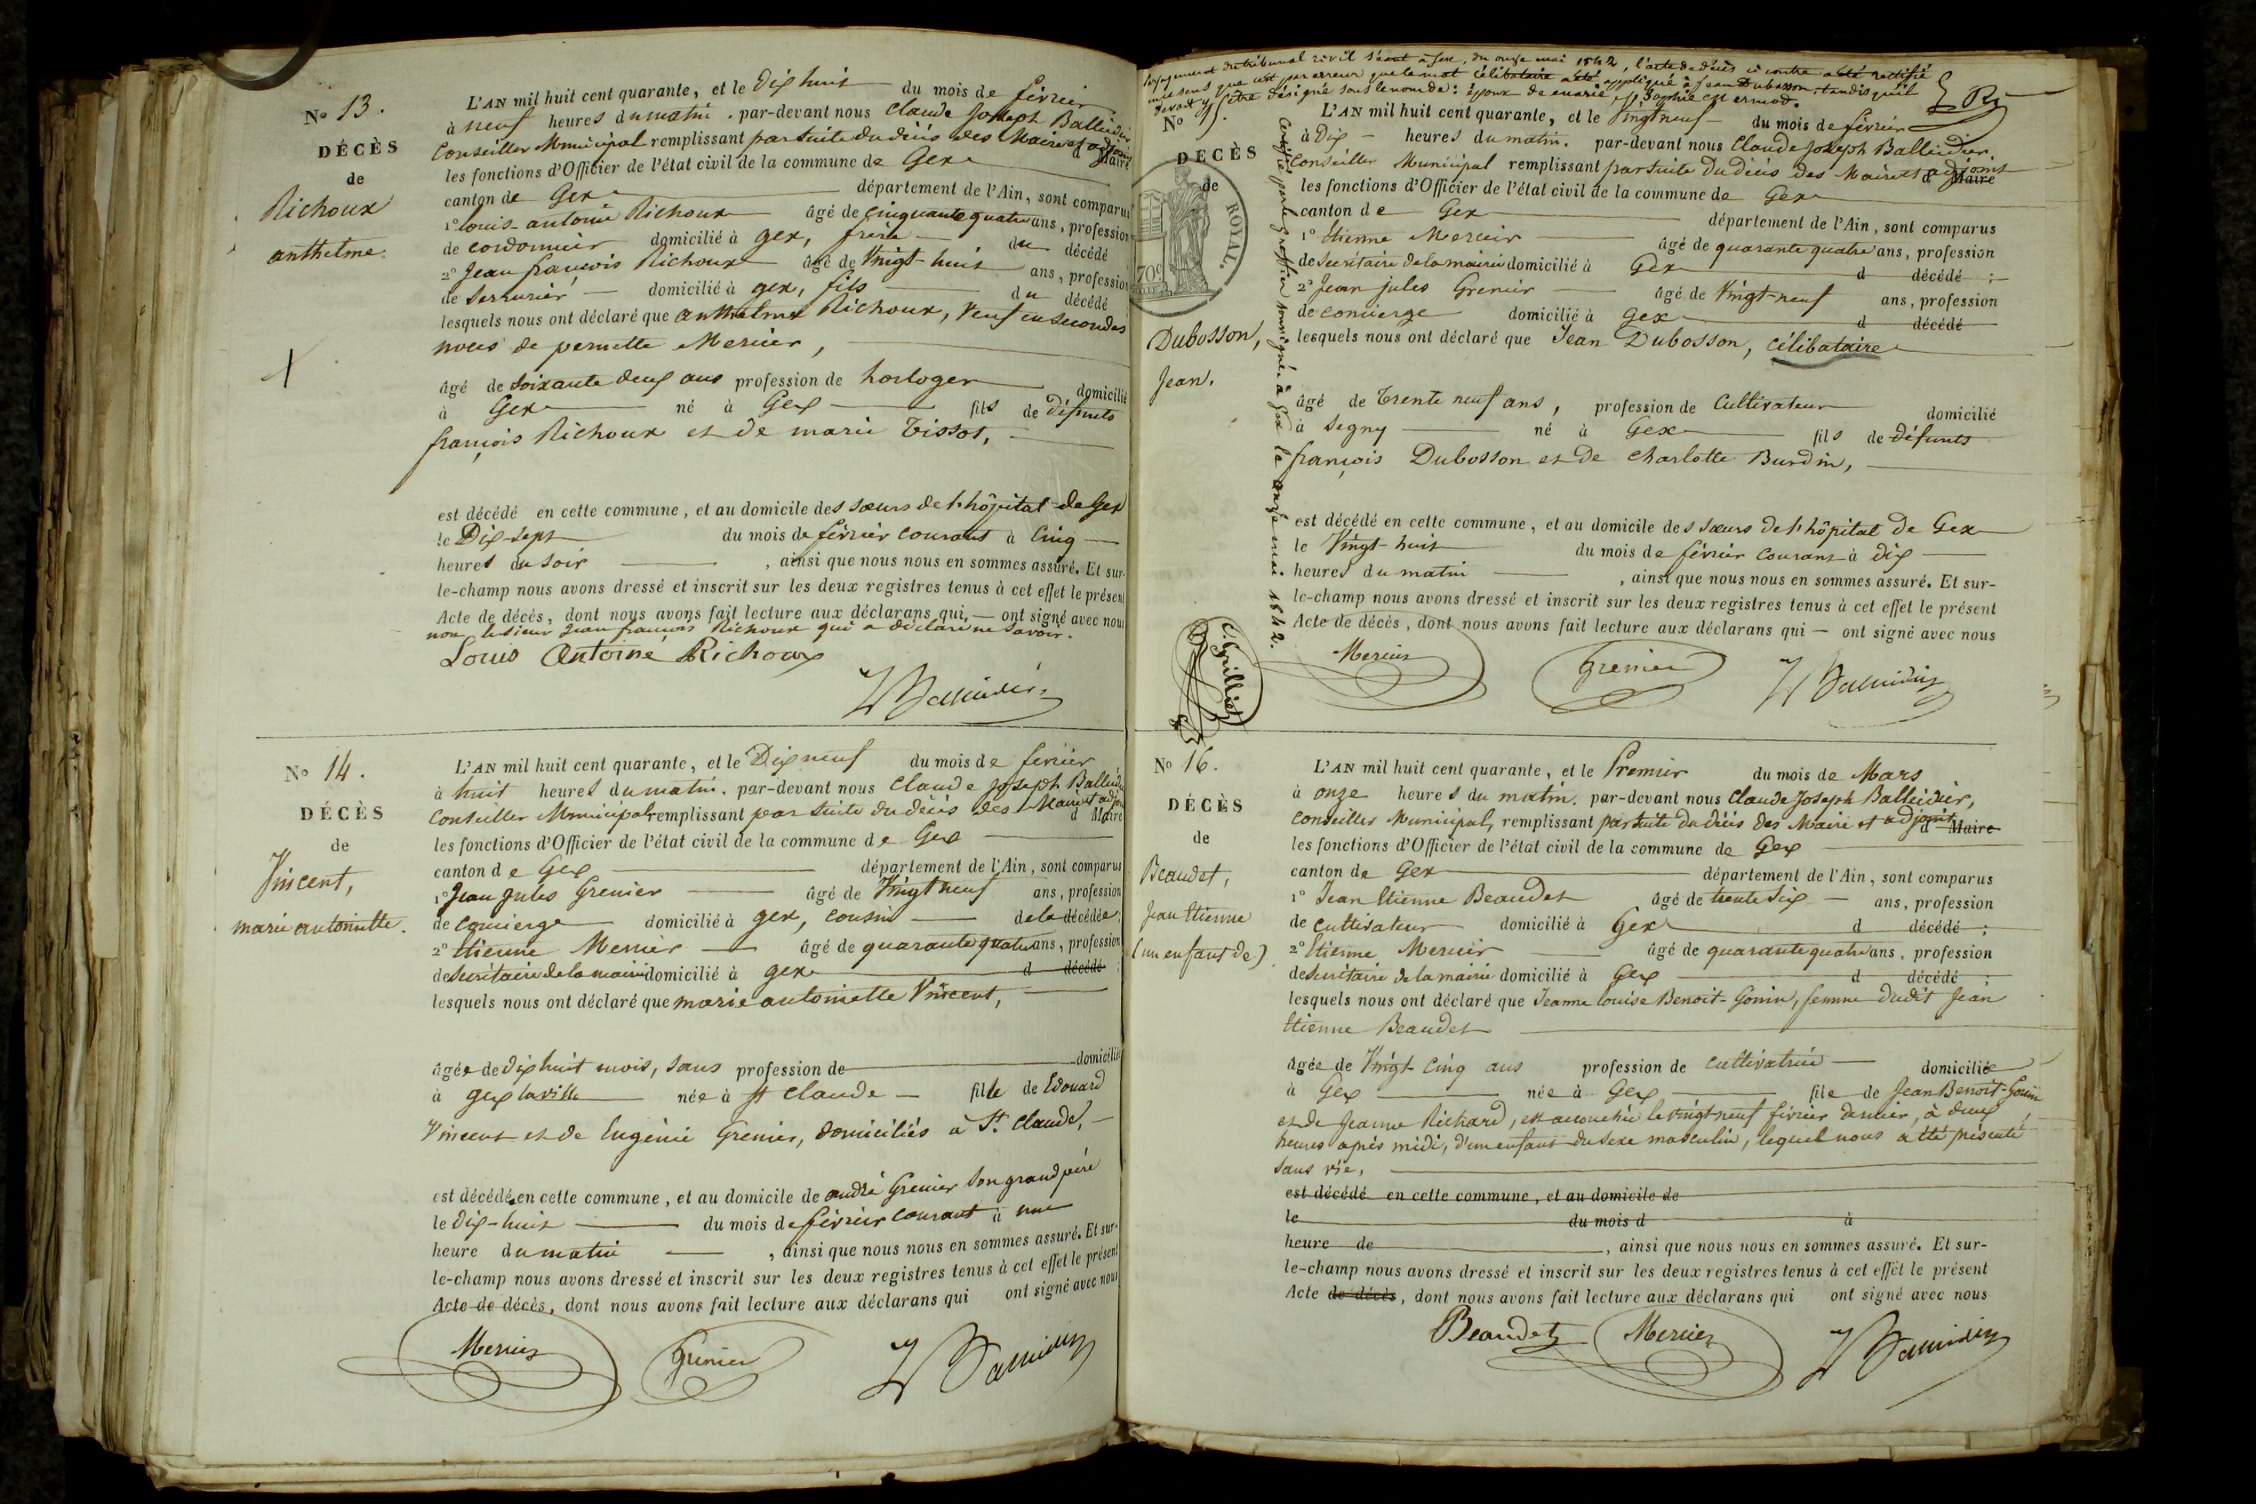 No 13.
DÉCÈS
de
Richoux
anthelme.
L'AN mil huit cent quarante, et le Dix huit du mois de février
à neuf heures du matin. par-devant nous Claude Joseph Balleidier
Conseiller Municipal remplissant par suite du décès des Maire et adjoint d Maire
les fonctions d'Officier de l'état civil de la commune de Gex
canton de Gex département de l'Ain, sont comparus
1° louis-antoine Richoux âgé de cinquante quatre ans, profession
de cordonnier domicilié à gex, frère du décédé
2° Jean françois Richoux âgé de Vingt-huit ans, profession
de serrurier domicilié à gex, fils du décédé
lesquels nous ont déclaré que anthelme Richoux, Veuf en secondes
noces de pernette Mercier,
âgé de soixante deux ans profession de horloger domicilié
à Gex né à Gex fils de défunts
françois Richoux et de marie Tissot,
est décédé en cette commune, et au domicile des sœurs de l'hôpital de Gex
le Dix-sept du mois de février courant à Cinq
heures du soir, ainsi que nous nous en sommes assuré. Et sur-
le-champ nous avons dressé et inscrit sur les deux registres tenus à cet effet le présent
Acte de décès, dont nous avons fait lecture aux déclarans qui, — ont signé avec nous
non le sieur Jean françois Richoux qui a déclaré ne savoir.
Louis Antoine Richoux
Balleidier
No 14.
DÉCÈS
de
Vincent,
marie antoinette.
L'AN mil huit cent quarante, et le Dix neuf du mois de février
à huit heures du matin. par-devant nous Claude Joseph Balleidier
Conseiller Municipal remplissant par suite du décès des Maire et adjoint d Maire
les fonctions d'Officier de l'état civil de la commune de Gex
canton de Gex département de l'Ain, sont comparus
1° Jean Jules Grenier âgé de Vingt neuf ans, profession
de concierge domicilié à gex, cousin de la décédée;
2° Etienne Mercier âgé de quarante quatre ans, profession
de secrétaire de la mairie domicilié à gex d décédé;
lesquels nous ont déclaré que marie antoinette Vincent,
âgée de dix huit mois, sans profession de domicilié
à gex la ville née à St Claude fille de Edouard
Vincent et de Eugénie Grenier, domiciliés à St. Claude,
est décédée en cette commune, et au domicile de andré Grenier son grand père
le dix-huit du mois de février courant à une
heure du matin, ainsi que nous nous en sommes assuré. Et sur-
le-champ nous avons dressé et inscrit sur les deux registres tenus à cet effet le présent
Acte de décès, dont nous avons fait lecture aux déclarans qui ont signé avec nous
Mercier Grenier Balleidier
Par jugement du tribunal civil séant à Gex, du onze mai 1842, l'acte de décès ci contre a été rectifié
en ce sens que c'est par erreur que le mot célibataire a été appliqué à Jean Dubosson, tandis qu'il
devait y être désigné sous le nom de: époux de marie
No 15.
DÉCÈS
de
ROYAL.
Dubosson,
Jean.
Certifié par le greffier soussigné à Gex le onze mai 1842.
L'AN mil huit cent quarante, et le Vingt neuf du mois de février
à Dix heures du matin. par-devant nous Claude Joseph Balleidier
Conseiller Municipal remplissant par suite du décès des Maire et adjoint d Maire
les fonctions d'Officier de l'état civil de la commune de Gex
canton de Gex département de l'Ain, sont comparus
1° Etienne Mercier âgé de quarante quatre ans, profession
de secrétaire de la mairie domicilié à Gex d décédé;
2° Jean jules Grenier âgé de Vingt-neuf ans, profession
de concierge domicilié à gex d décédé
lesquels nous ont déclaré que Jean Dubosson, célibataire
âgé de Trente neuf ans, profession de Cultivateur domicilié
à Segny né à Gex fils de défunts
françois Dubosson et de Charlotte Burdin,
est décédé en cette commune, et au domicile des sœurs de l'hôpital de Gex
le Vingt-huit du mois de février courant à dix
heures du matin, ainsi que nous nous en sommes assuré. Et sur-
le-champ nous avons dressé et inscrit sur les deux registres tenus à cet effet le présent
Acte de décès, dont nous avons fait lecture aux déclarans qui — ont signé avec nous
Mercier Grenier Balleidier
No 16.
DÉCÈS
de
Beaudet,
Jean Etienne
(un enfant de)
L'AN mil huit cent quarante, et le Premier du mois de Mars
à onze heures du matin. par-devant nous Claude Joseph Balleidier,
Conseiller Municipal, remplissant par suite du décès des Maire et adjoint d Maire
les fonctions d'Officier de l'état civil de la commune de Gex
canton de Gex département de l'Ain, sont comparus
1° Jean Etienne Beaudet âgé de trente six ans, profession
de cultivateur domicilié à Gex d décédé;
2° Etienne Mercier âgé de quarante quatre ans, profession
de secrétaire de la mairie domicilié à Gex d décédé;
lesquels nous ont déclaré que Jeanne louise Benoit-Gonin, femme dudit Jean
Etienne Beaudet
âgée de Vingt-cinq ans profession de cultivatrice domiciliée
à Gex née à Gex file de Jean Benoit-Gonin
et de Jeanne Richard, est accouchée le vingt neuf février dernier, à deux
heures après midi, d'un enfant du sexe masculin, lequel nous a été présenté
sans vie,
est décédé en cette commune, et au domicile de
le du mois d à
heure de, ainsi que nous nous en sommes assuré. Et sur-
le-champ nous avons dressé et inscrit sur les deux registres tenus à cet effet le présent
Acte de décès, dont nous avons fait lecture aux déclarans qui ont signé avec nous
Beaudet Mercier Balleidier